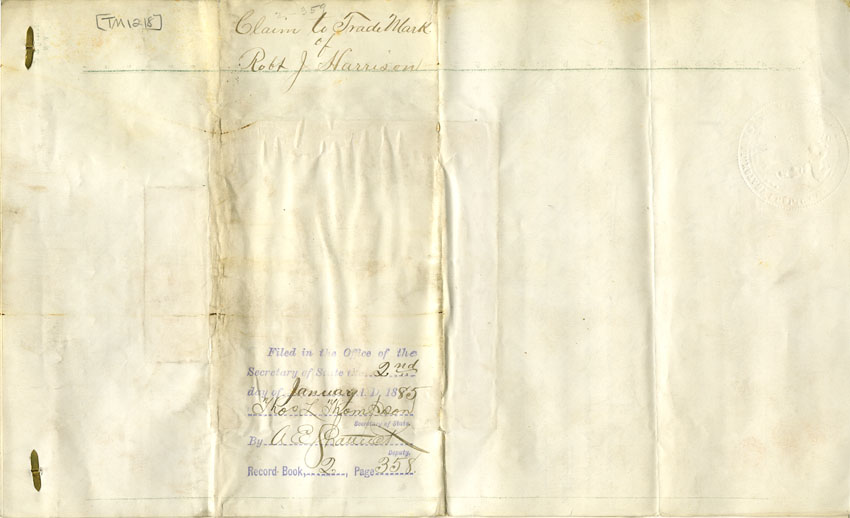 [TM1218]
358
Claim to Trade Mark
of
Robt J Harrison
Filed in the Office of the
Secretary of State the 2nd
day of January A.D. 1885
Thos L Thompson
Secretary of State.
By A E Shattuck
Deputy.
Record Book, 2, Page 358